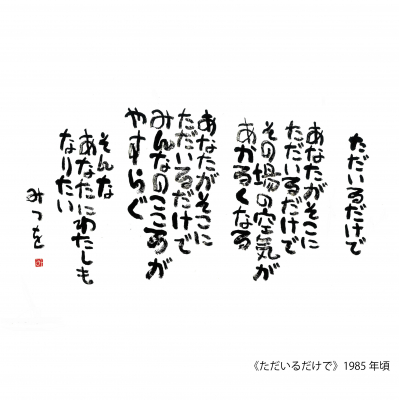 ただいるだけで
あなたがそこに
ただいるだけで
その場の空気が
あかるくなる
あなたがそこに
ただいるだけで
みんなのこころが
やすらぐ
そんな
あなたにわたしも
なりたい
みつを
《ただいるだけで》1985 年頃